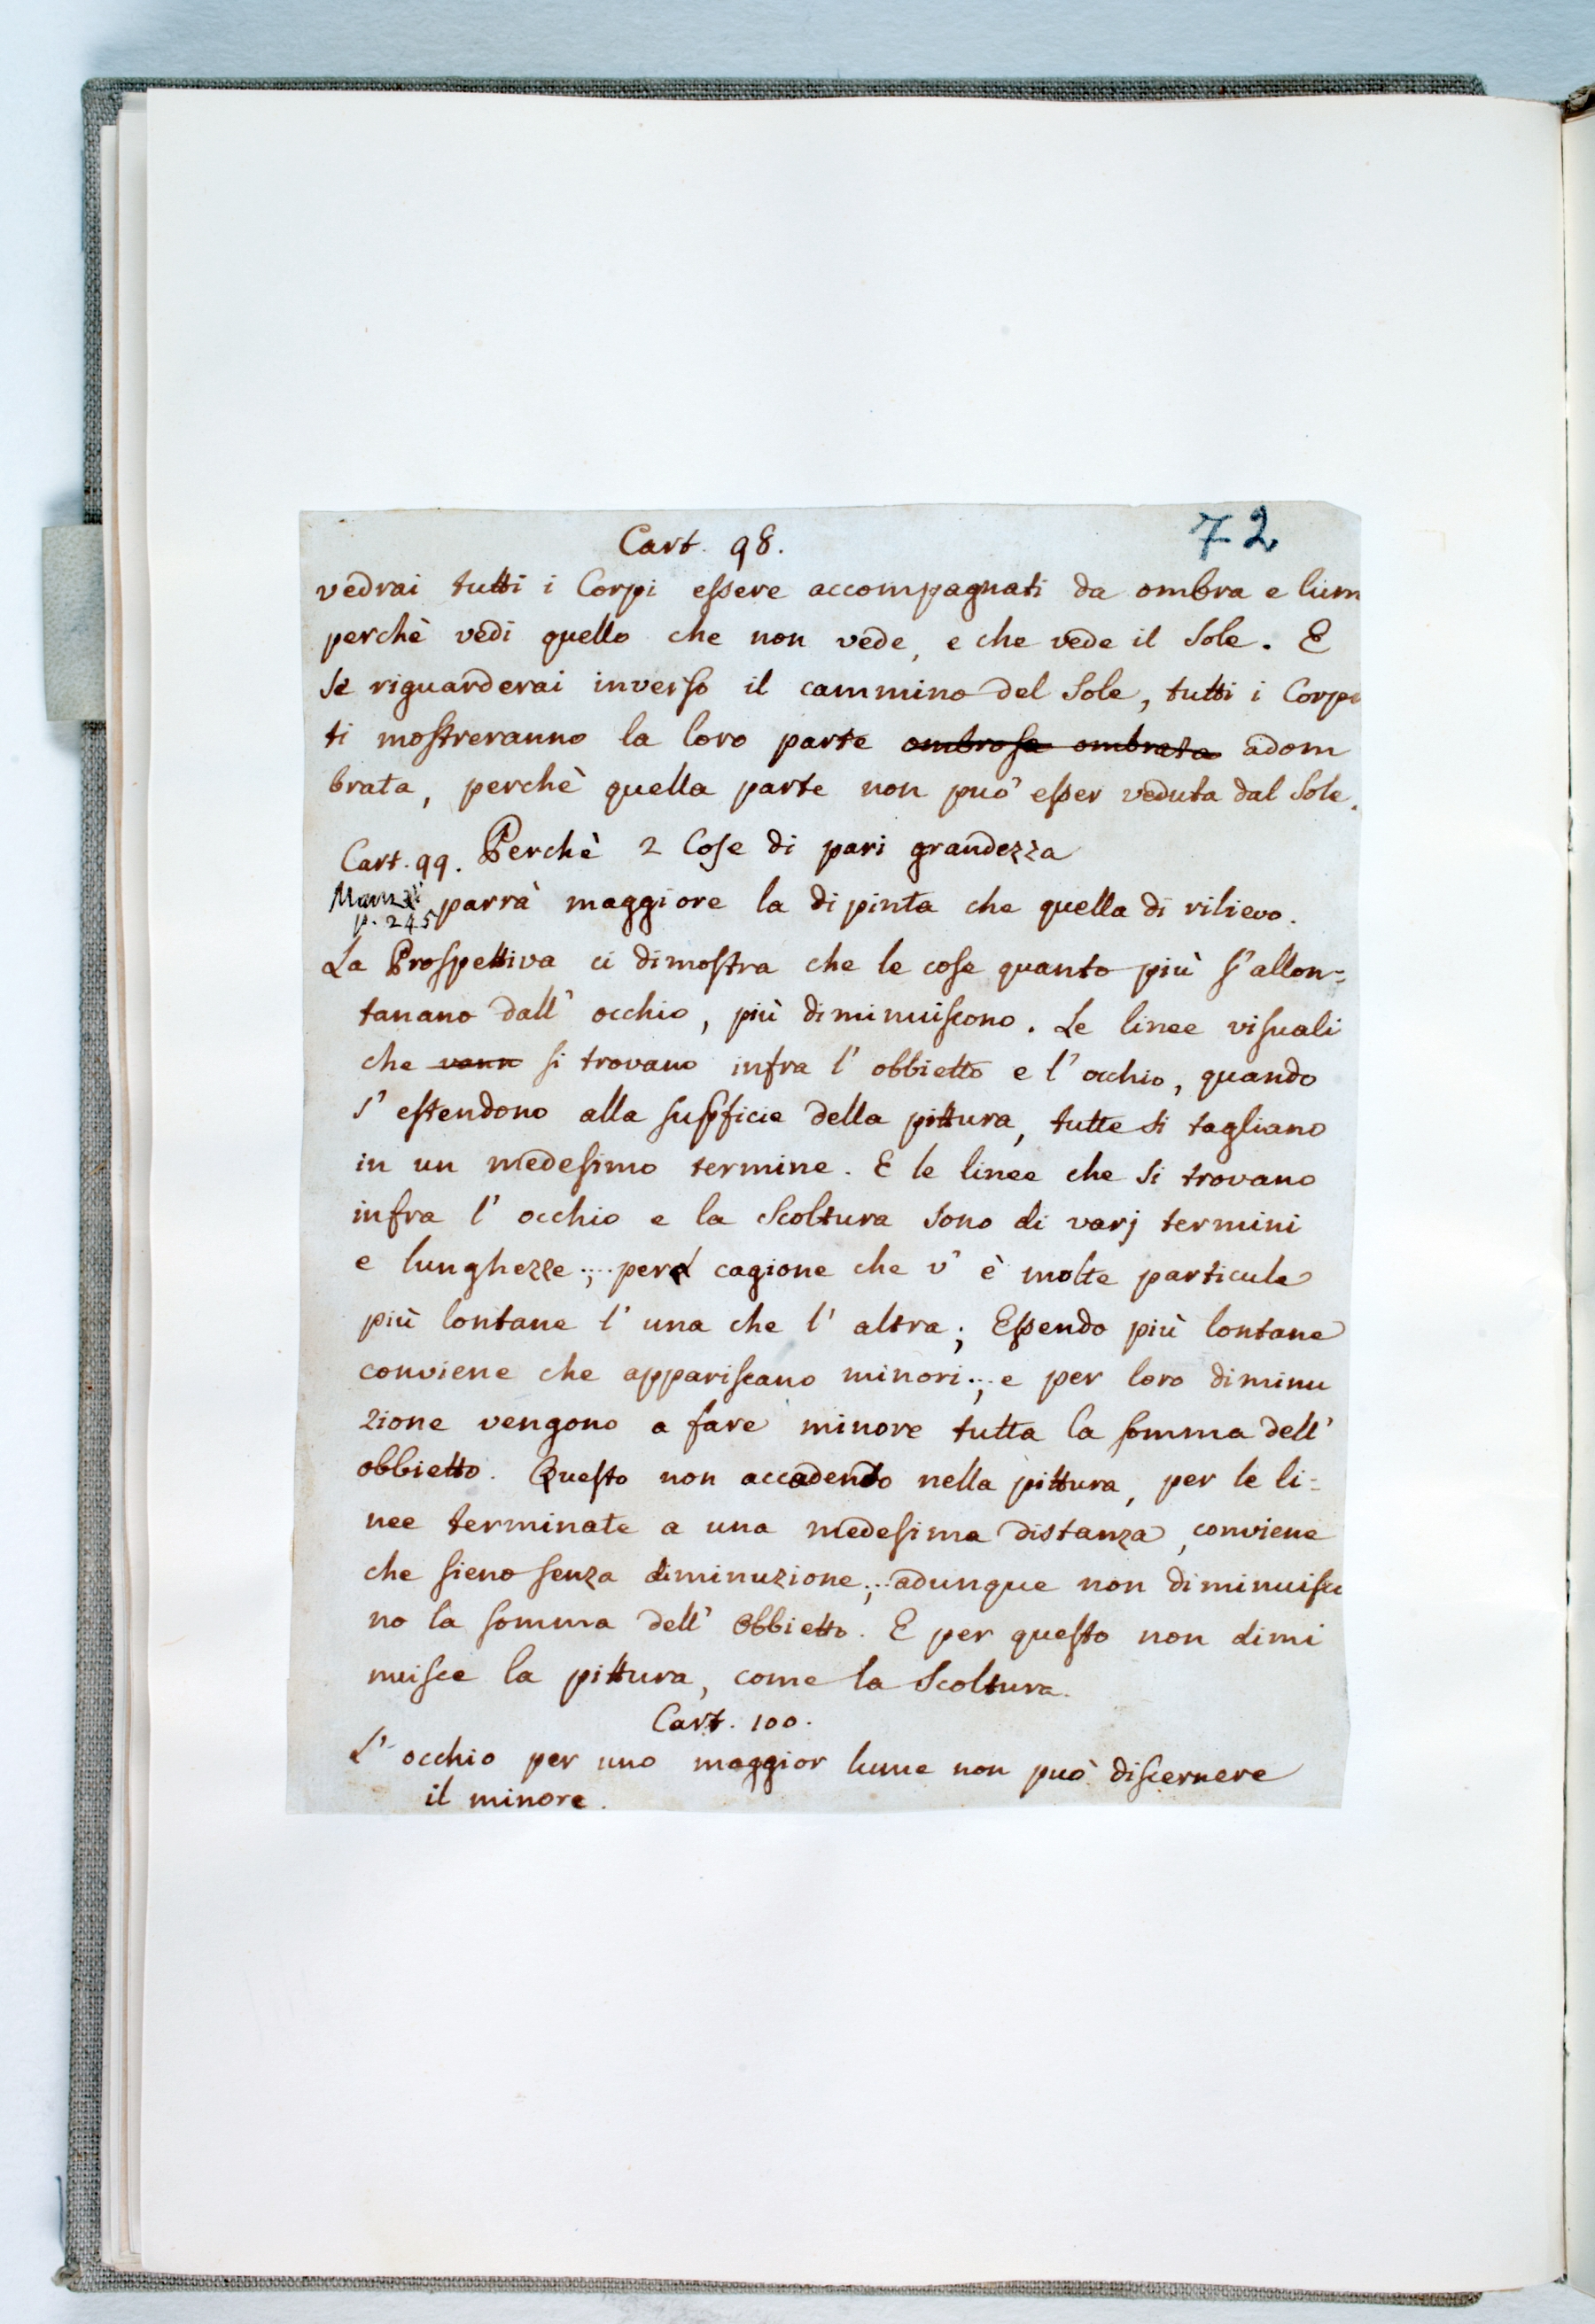 Cart. 98.
72
vedrai tutti i Corpi essere accompagnati da ombra e lum
perchè vedi quello che non vede, e che vede il Sole. E
se riguarderai inverso il cammino del Sole, tutti i Corpi
ti mostreranno la loro parte ombrosa ombrata adom
brata, perchè quella parte non può esser veduta dal Sole.
Cart. 99. Perchè 2 Cose di pari grandezza
Manzi parrà maggiore la dipinta che quella di rilievo.
p. 245
La Prospettiva ci dimostra che le cose quanto più s'allon=
tanano dall' occhio, più diminuiscono. Le linee visuali
che vann si trovano infra l' obbietto e l' occhio, quando
s' estendono alla supficie della pittura, tutte si tagliano
in un medesimo termine. E le linee che si trovano
infra l' occhio e la Scoltura sono di varj termini
e lunghezze; per cagione che v' è molte particule
più lontane l' una che l' altra; Essendo più lontane
conviene che appariscano minori; e per loro diminu
zione vengono a fare minore tutta la somma dell'
obbietto. Questo non accadendo nella pittura, per le li=
nee terminate a una medesima distanza, conviene
che sieno senza diminuzione; adunque non diminuisco
no la somma dell' Obbietto. E per questo non dimi
nuisce la pittura, come la Scoltura.
Cart. 100.
L' occhio per uno maggior lume non può discernere
il minore.